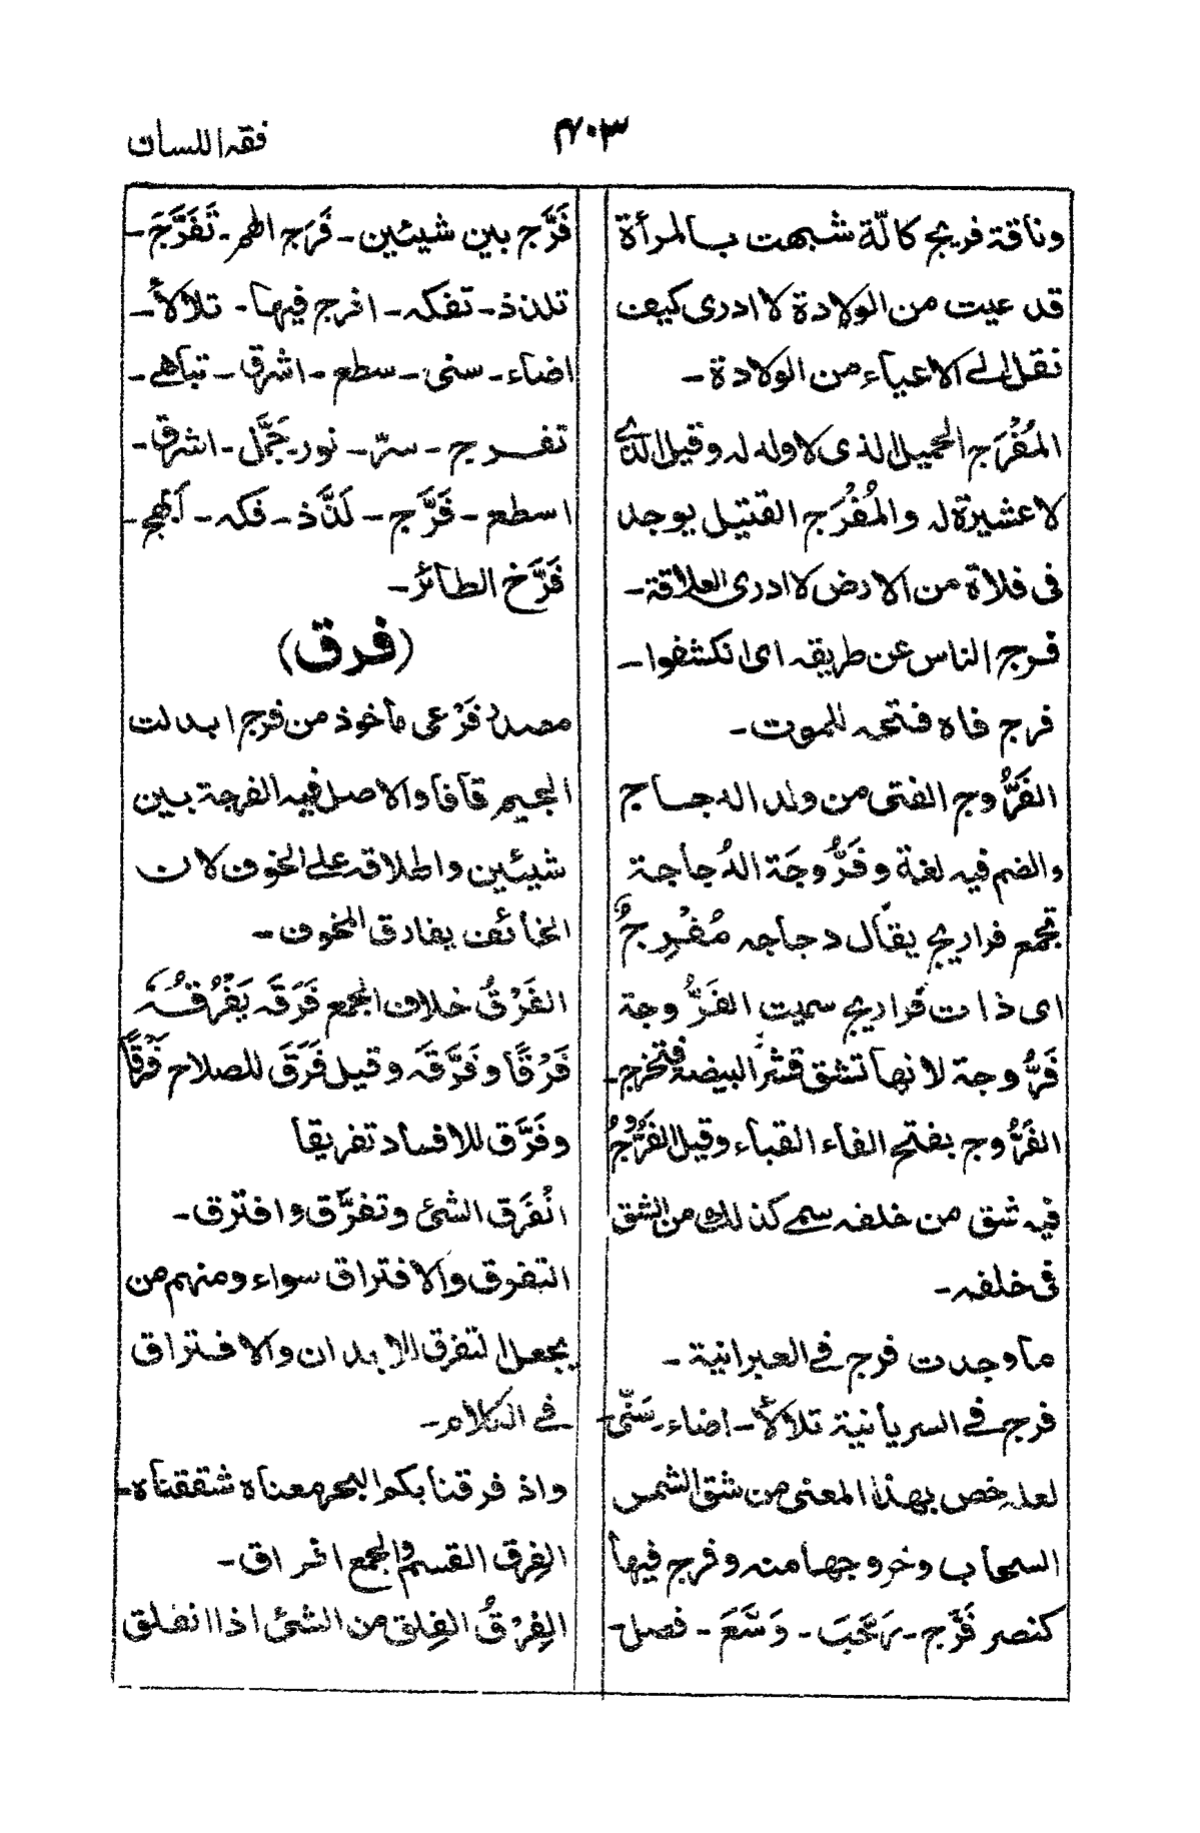 فقه اللسان
۴۰۳
وناقة فريج كالّة شبهت بالمرأة
قد عيت من الولادة لا ادرى كيف
نقل الى الاعياء من الولادة ـ
المُفْرَج الحميل الذى لا ولد له وقيل الذى
لا عشيرة له والمُفْرَج القتيل يوجد
فى فلاة من الارض لا ادرى العلاقة ـ
فرج الناس عن طريقه اى انكشفوا ـ
فرج فاه فتحه للموت ـ
الفَرُّوج الفتى من ولد الدجاج
والضم فيه لغة وفَرُّوجَة الدجاجة
تجمع فراريج يقال دجاجه مُفْرِجٌ
اى ذات فراريج سميت الفَرُّوجة
فَرُّوجة لانها تشق قشر البيضة فتخرج ـ
الفَرُّوج بفتح الفاء القباء وقيل الفَرُّوجُ
فيه شق من خلفه سمى كذلك من الشق
فى خلفه ـ
ما وجدت فرج فى العبرانية ـ
فرج فى السريانية تلالأ ـ اضاء ـ سَنّى ـ
لعله خص بهذا المعنى من شق الشمس
السحاب وخروجها منه وفرج فيها
كنصر فَرَّج ـ رَحَّبَ ـ وَسَّعَ ـ فصل ـ
فَرَّج بين شيئين ـ فَرَج الهم ـ تَفَرَّجَ ـ
تلذذ ـ تفكه ـ افرج فيها ـ تلالأ ـ
اضاء ـ سنى ـ سطع ـ اشرق ـ تباهى ـ
تفرج ـ سرّ ـ نور ـ جَمَّل ـ اشرق ـ
اسطع ـ فَرَّج ـ لَذَّذ ـ فكه ـ ابهج ـ
فَرَّخ الطائر ـ
(فرق)
مصدر فَرْعى ماخوذ من فرج ابدلت
الجيم قافا والاصل فيه الفرجة بين
شيئين واطلاقه على الخوف لان
الخائف يفارق المخوف ـ
الفَرْقُ خلاف الجمع فَرَقَه يَفْرُقُهُ
فَرْقًا وفَرَّقَه وقيل فَرَقَ للصلاح فَرْقًا
وفَرَّق للافساد تفريقا
انْفَرَق الشئ وتفرَّق وافترق ـ
التفرق والافتراق سواء ومنهم من
يجعل التفرق للابدان والافتراق
فى الكلام ـ
واذ فرقنا بكم البحر معناه شققناه ـ
الفِرق القسم والجمع افراق ـ
الفِرْقُ الفِلق من الشئ اذا انفلق